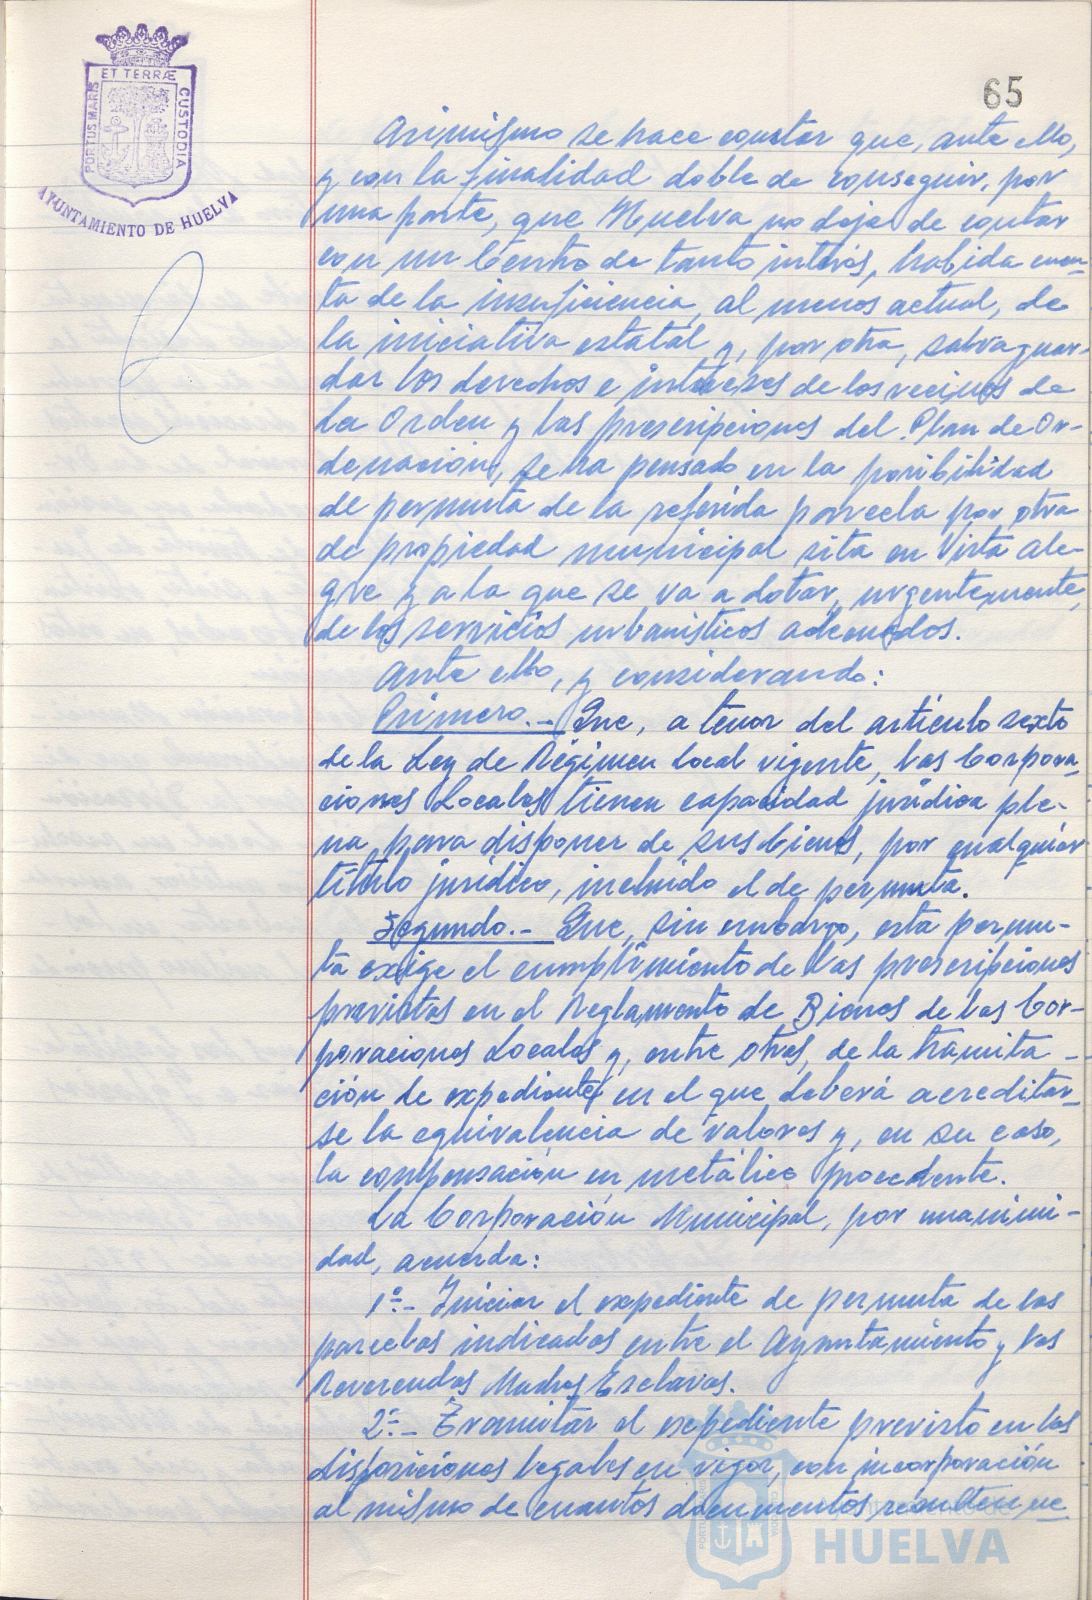 65
ET TERRÆ
PORTUS MARIS
CUSTODIA
AYUNTAMIENTO DE HUELVA
Asimismo se hace constar que, ante ello,
y con la finalidad doble de conseguir, por
una parte, que Huelva no deje de contar
con un Centro de tanto interés, habida cuen-
ta de la insuficiencia, al menos actual, de
la iniciativa estatal y, por otra, salvaguar-
dar los derechos e intereses de los vecinos de
La Orden y las prescripciones del Plan de Or-
denación, se ha pensado en la posibilidad
de permuta de la referida parcela por otra
de propiedad municipal sita en Vista Ale-
gre y a la que se va a dotar, urgentemente,
de los servicios urbanísticos adecuados.
Ante ello, y considerando:
Primero.- Que, a tenor del artículo sexto
de la Ley de Régimen Local vigente, las Corpora-
ciones Locales tienen capacidad jurídica ple-
na para disponer de sus bienes, por cualquier
título jurídico, incluido el de permuta.
Segundo.- Que, sin embargo, esta permu-
ta exige el cumplimiento de las prescripciones
previstas en el Reglamento de Bienes de las Cor-
poraciones Locales y, entre otras, de la tramita-
ción de expediente en el que deberá acreditar-
se la equivalencia de valores y, en su caso,
la compensación en metálico procedente.
La Corporación Municipal, por unanimi-
dad, acuerda:
1º.- Iniciar el expediente de permuta de las
parcelas indicadas entre el Ayuntamiento y las
Reverendas Madres Esclavas.
2º.- Tramitar el expediente previsto en las
disposiciones legales en vigor, con incorporación
al mismo de cuantos documentos resulten ne
Ayuntamiento de
HUELVA